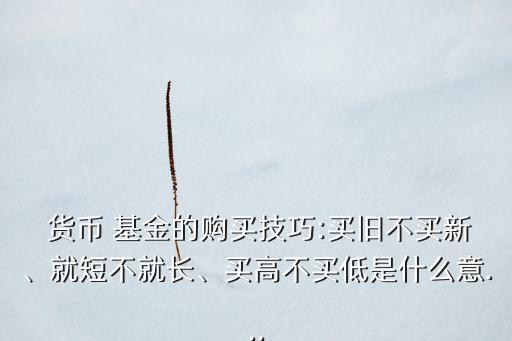 货币 基金的购买技巧:买旧不买新
、就短不就长、买高不买低是什么意.
..